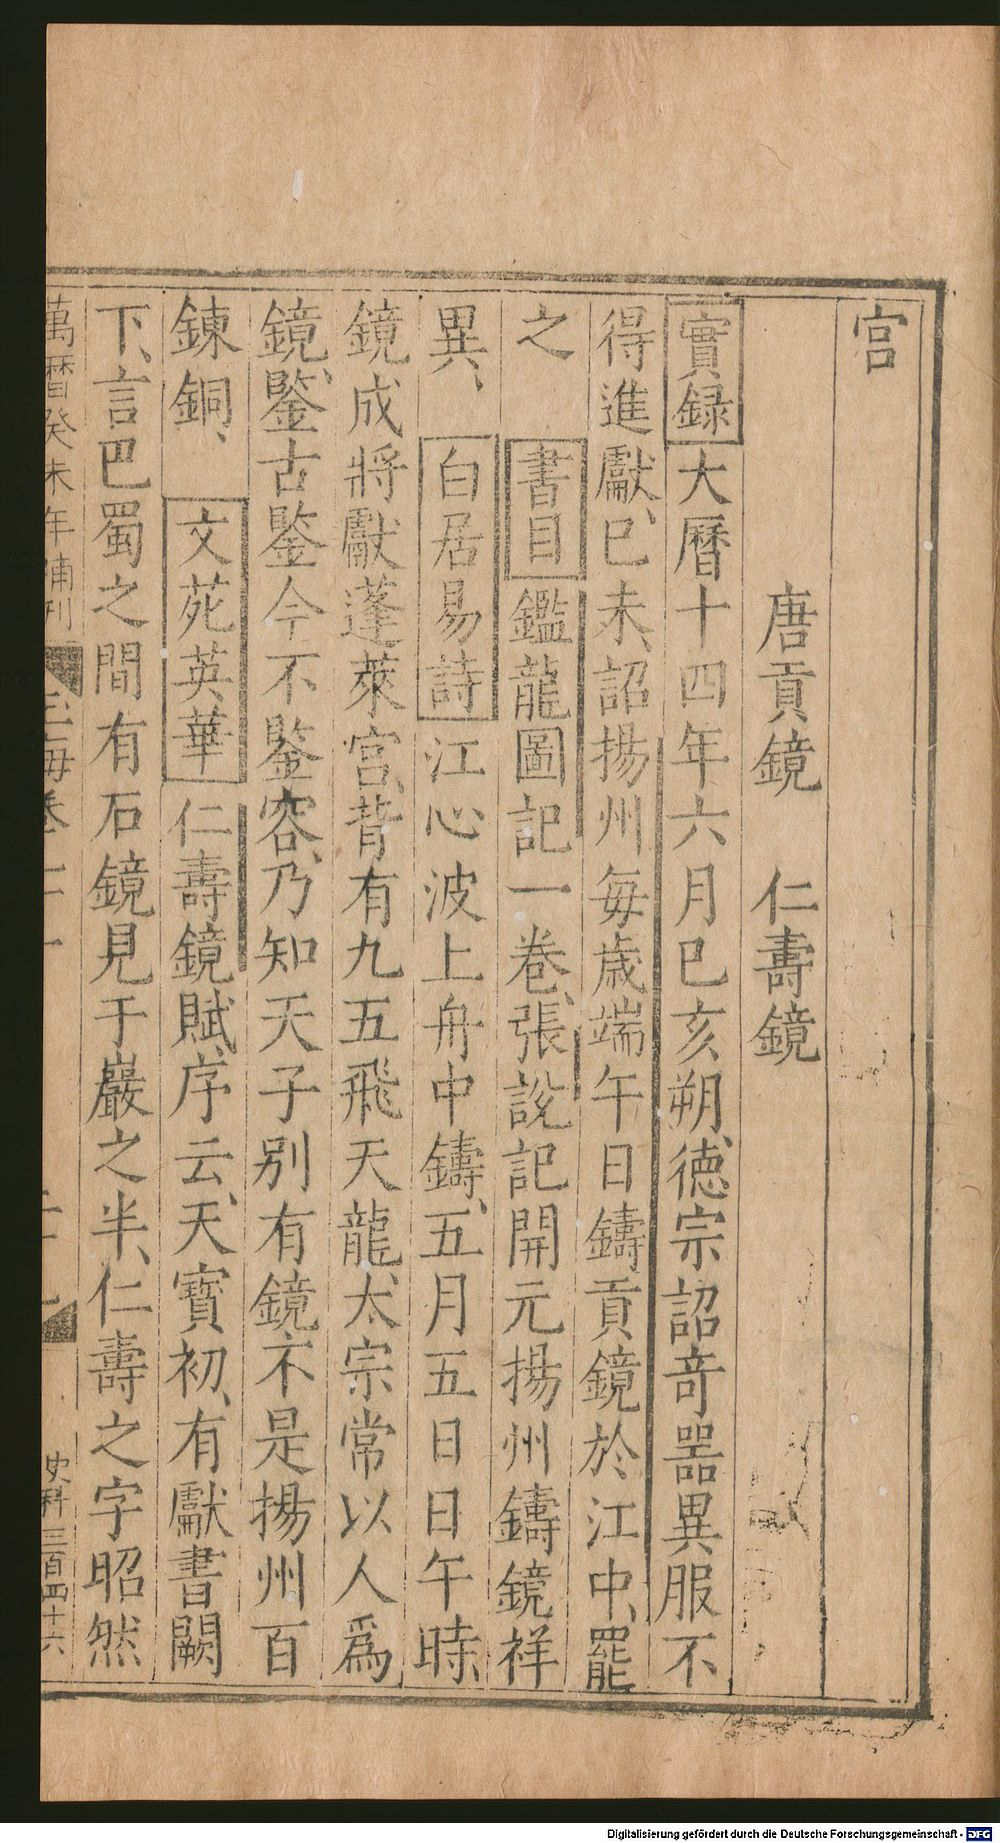 宫
唐貢鏡　仁壽鏡
實録大曆十四年六月巳亥朔、德宗詔竒噐異服不
得進獻、巳未、詔揚州每歲端午日鑄貢鏡於江中、罷
之　書目鑑龍圖記一卷、張說記開元揚州鑄鏡祥
異、白居易詩江心波上舟中鑄、五月五日日午時、
鏡成將獻蓬萊宮、昔有九五飛天龍、太宗常以人爲
鏡、鑒古鑒今不鑒容、乃知天子別有鏡、不是揚州百
鍊銅、文苑英華仁壽鏡賦、序云、天寶初、有獻書闕
下、言巴蜀之間有石鏡見于巖之半、仁壽之字昭然
萬曆癸未年補刊
史科三百四十六
Digitalisierung gefördert durch die Deutsche Forschungsgemeinschaft - DFG